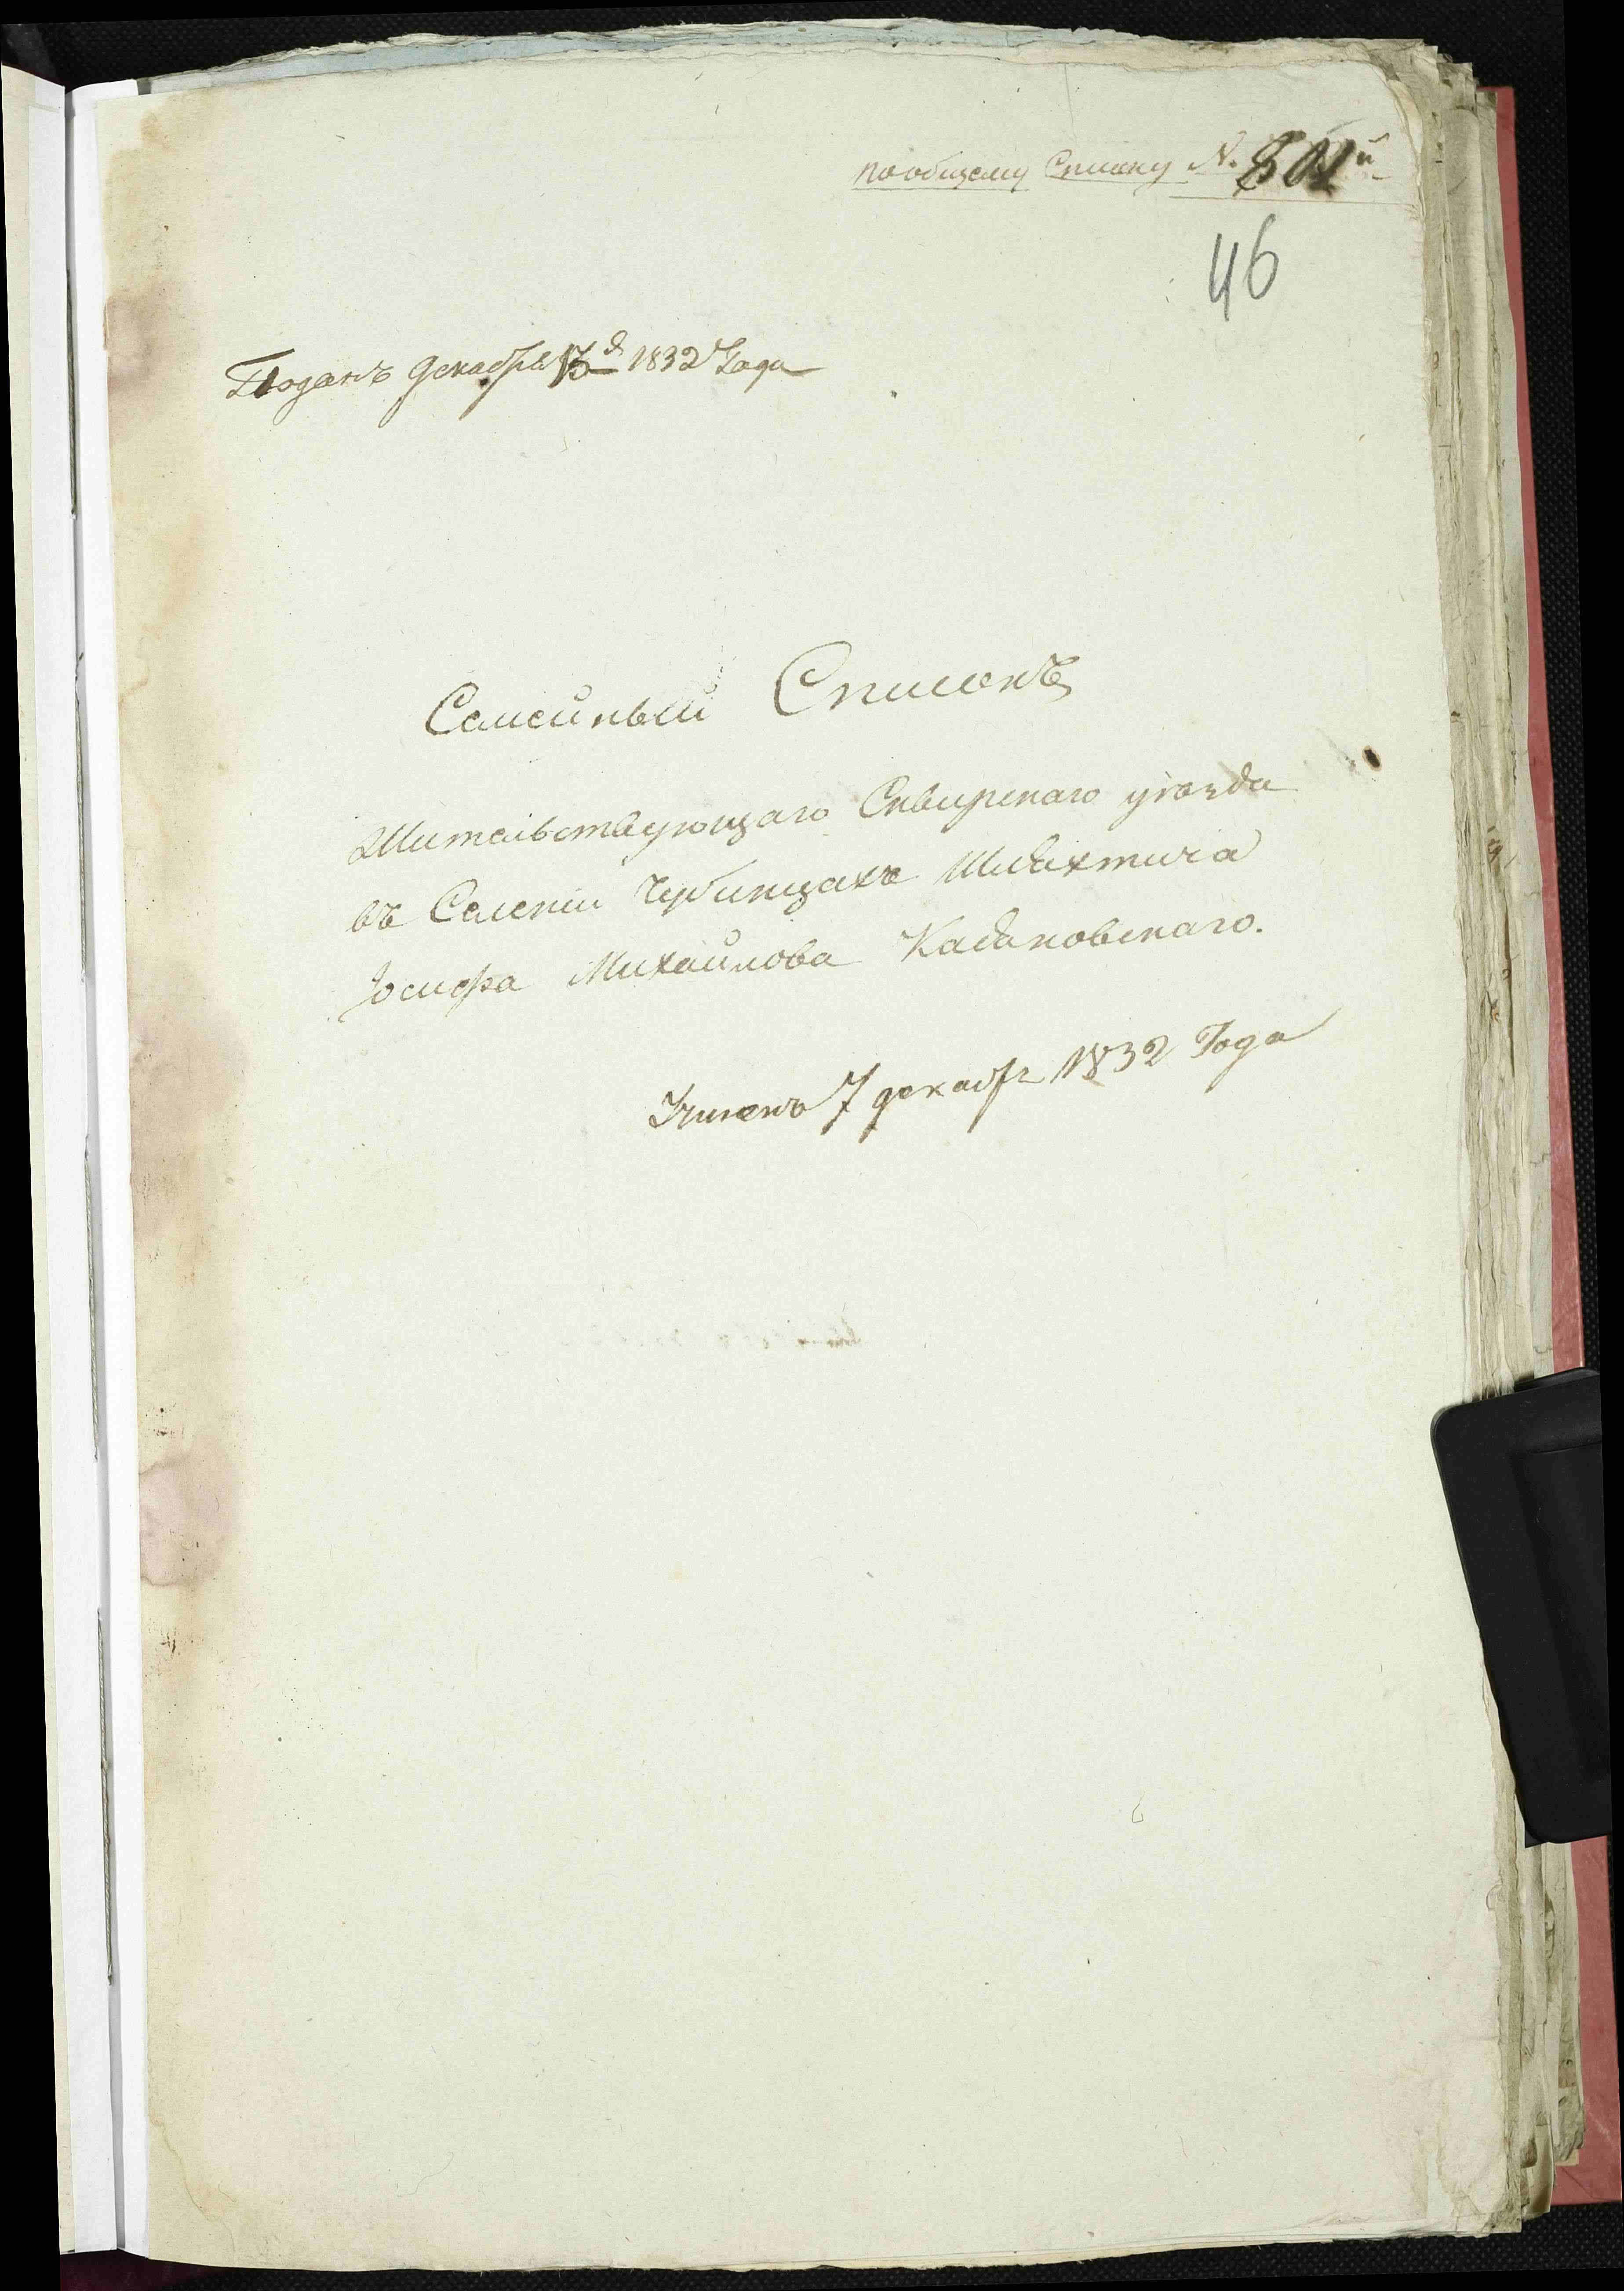 По общему Списку N. 801й
46
Поданъ декабря 13д 1832 Года
Семейный Списокъ
Жительствующаго Сквирскаго уѣзда
въ Селеніи Чубинцахъ Шляхтича
Іосифа Михайлова Кадановскаго.
Учинен 7 декабр 1832 Года